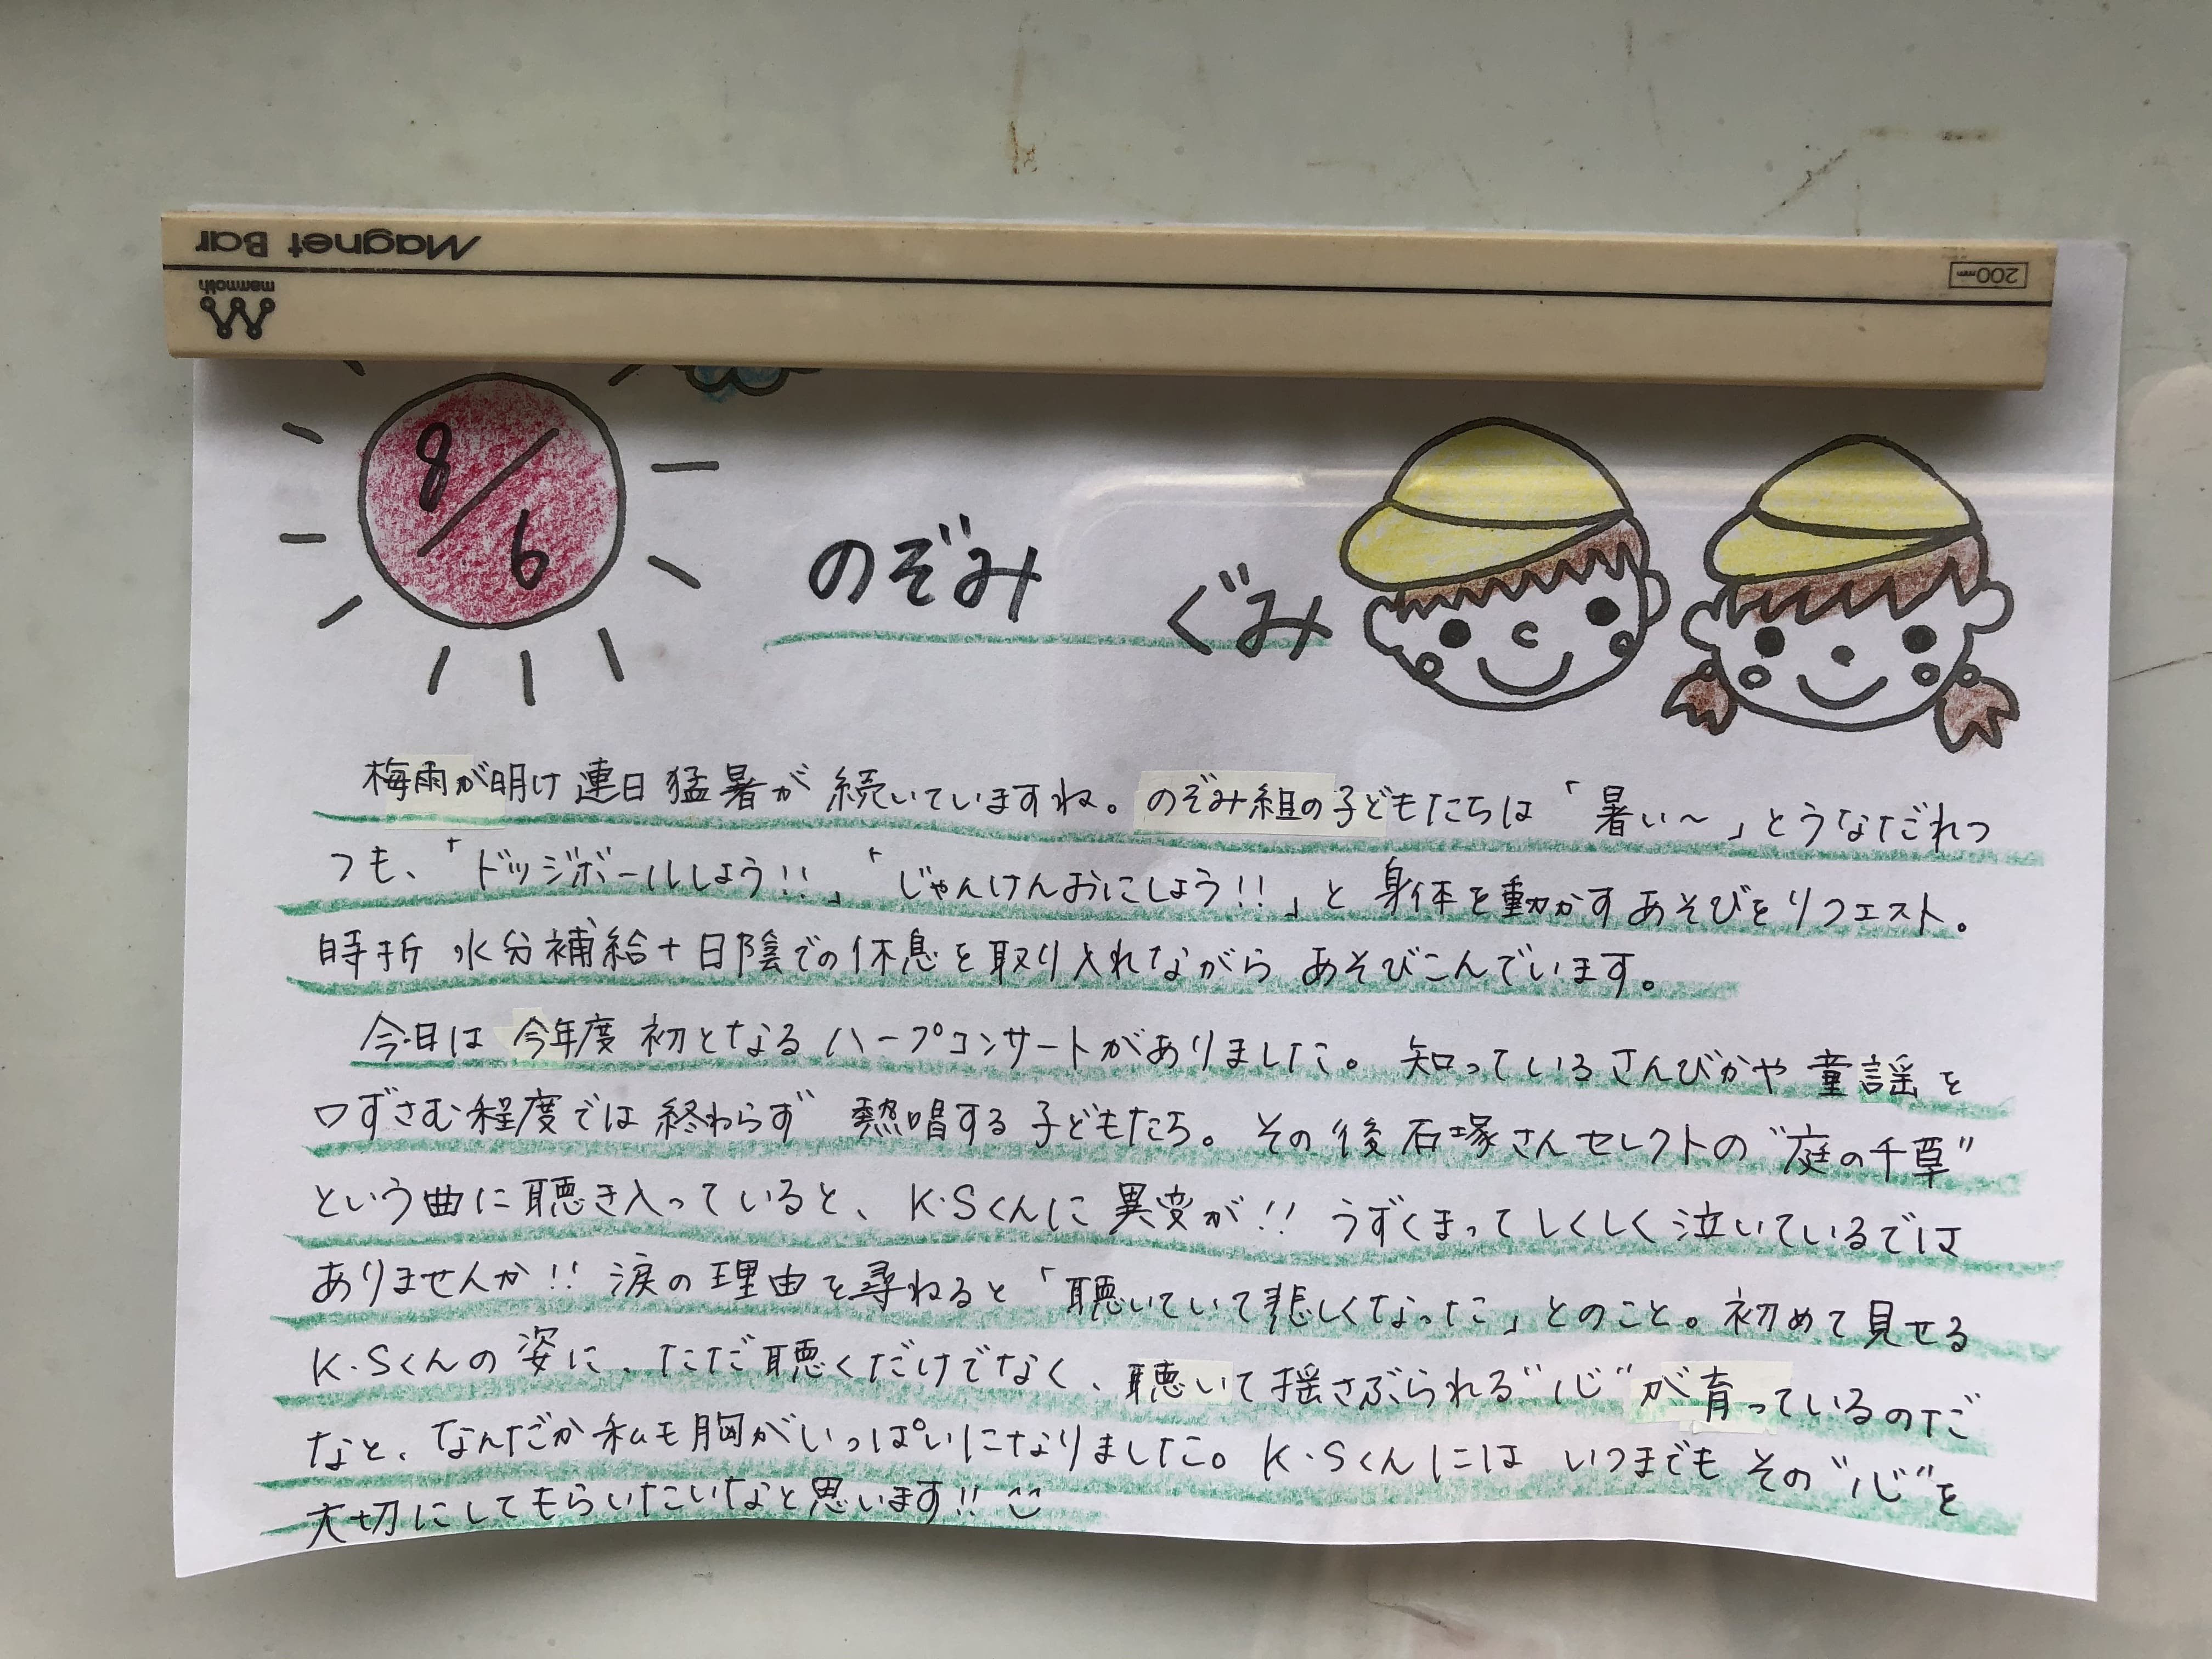 Magnet Bar
mammoth
200mm
8/6
のぞみ ぐみ
梅雨が明け連日猛暑が続いていますね。のぞみ組の子どもたちは「暑い～」とうなだれつ
つも、「ドッジボールしよう!!」「じゃんけんおにしよう!!」と身体を動かすあそびをリクエスト。
時折水分補給+日陰での休息を取り入れながらあそびこんでいます。
今日は今年度初となるハープコンサートがありました。知っているさんびかや童謡を
口ずさむ程度では終わらず熱唱する子どもたち。その後石塚さんセレクトの"庭の千草"
という曲に聴き入っていると、K・Sくんに異変が!!うずくまってしくしく泣いているでは
ありませんか!!涙の理由を尋ねると「聴いていて悲しくなった」とのこと。初めて見せる
K・Sくんの姿に、ただ聴くだけでなく、聴いて揺さぶられる"心"が育っているのだ
なと、なんだか私も胸がいっぱいになりました。K・Sくんにはいつまでもその"心"を
大切にしてもらいたいなと思います!!